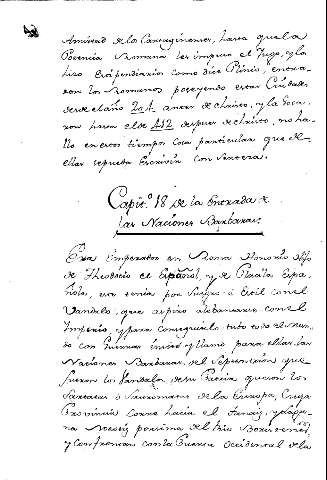 Amistad de los Cartaginenses, hasta que la
Potencia Romana les impuso el Yugo, y los
hizo Estipendiarios como dice Plinio, entra-
ron los Romanos poseyendo estas Ciudades
desde el año 204 antes de christo, y la goza-
ron hasta el de 412 despues de christo, no ha-
llo en estos tiempos cosa particular que de
ellas sepueda Escrivir con certeza.
Capit.º 18 de la Entrada de
las Naciones Barbaras.
Era Emperador en Roma Honorio Hijo
de Theodocio el Español, y de Placila Espa-
ñola, este tenia por á Estil con el
Vandalo, que aspiro alebantarse con el
Imperio, y para conseguirlo tubo todo el Mun-
do con Guerras y llamo para ellas las
Naciones Barbaras, del Septentrion que
fueron los Vandalos, de su Patria que son los
Sarmatas ó Sauromatas de la Europa, Cuya
Provincia corre hacia el Tanais, y lagu-
na Meotis proxima del Rio Boristenes,
y Confrontan con la Puerta Occidental de la